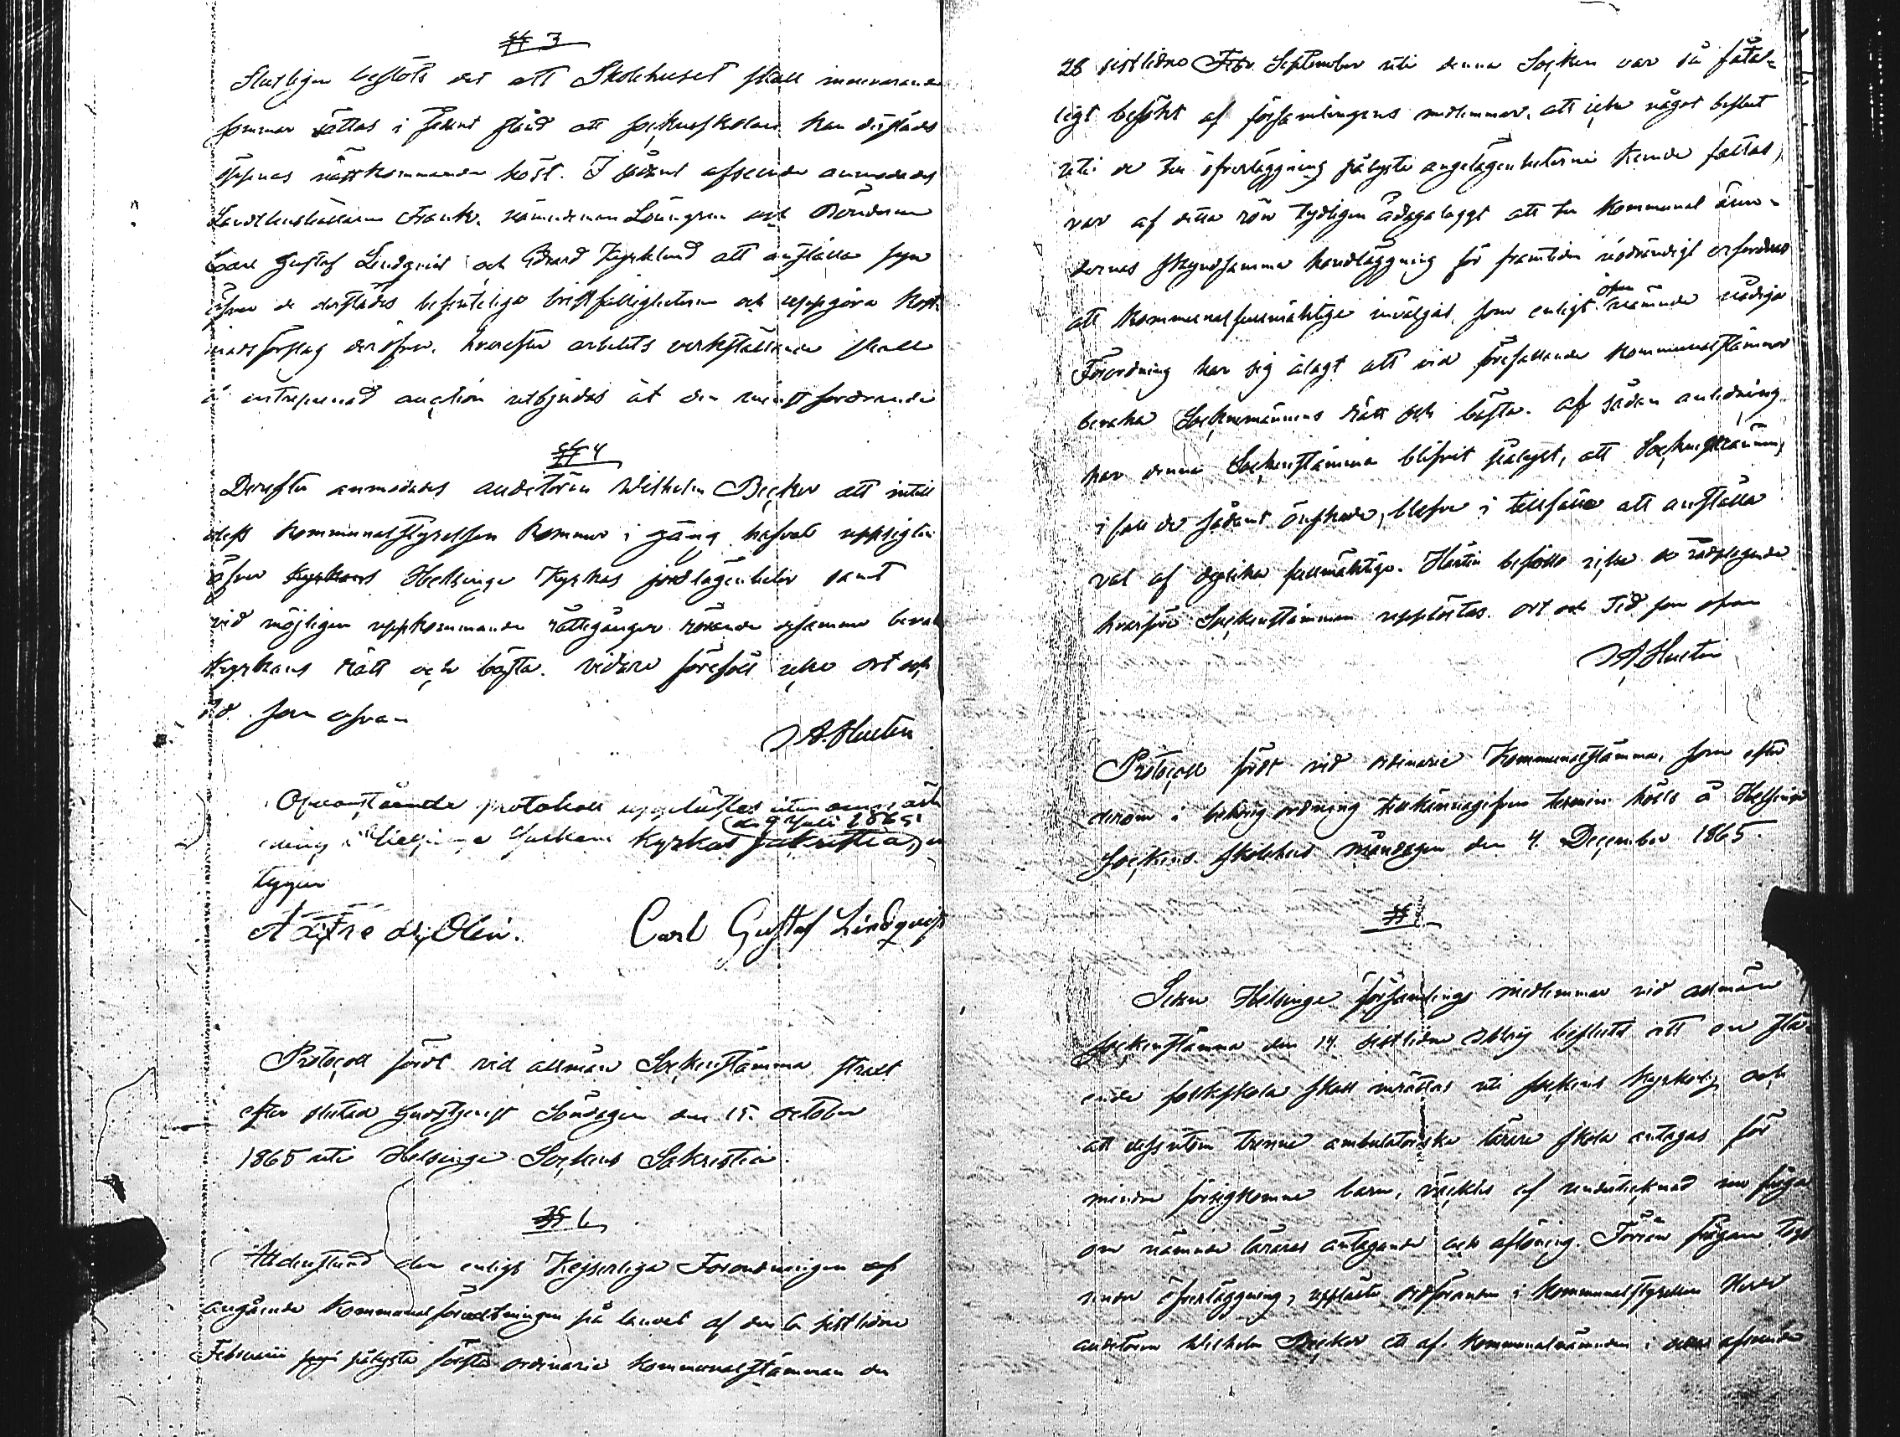 § 3
Slutligen beslöts det att Skolehuset skall innevarande
sommar sättas i sådant stånd att sockneskolan kan derstädes
öppnas nästkommande höst. I sådant afseende anmodades
Landtbrukaren Frank, nämndeman Lönngren och Bonden
Carl Gustaf Lindqvist och Edvard Kyrklund att anställa syn
öfver de derstädes befintliga bristfälligheterna och uppgöra kost-
nadsförslag deröfver, hvarefter arbetets verkställande skall
å entreprenad auction utbjudas åt den minstfordrande
§ 4
Derefter anmodades auditören Wilhelm Becker att intill
dess Kommunalstyrelsen kommer i gång hafva uppsigten
öfver Helsinge Kyrkas jordlägenheter samt
vid möjligen uppkommande rättegångar rörande desamma bevaka
Kyrkans rätt och bästa. Vidare föreföll icke ort och
tid som ofvan
A. Hustin
Ofvanstående protokoll upplästes utan anmärk
ning i Helsinge Sockens Kyrkas sakristia
den 9 Juli 1865
tygar
Axel Fredr. Olin. Carl Gustaf Lindqvist
Protocoll fördt vid allmän Sockenstämma strax
efter slutad Gudstjenst Söndagen den 15. October
1865 uti Helsinge Sockens Sakristia
§ 1
Alldenstund den enligt Kejserliga Förordningen af
angående Kommunalförvaltningen på landet af den 6 sistlidne
Februarii pålysta första ordinarie Kommunalstämman den
28 sistlidne September uti denna Socken var så fåta-
ligt besökt af församlingens medlemmar, att icke något beslut
uti de till öfverläggning pålysta angelägenheterna kunde fattas,
var af detta rön tydligen ådagalaggt att för Kommunal ären-
dernas skyndsamma handläggning för framtiden nödvändigt erfordras
att Kommunalfullmäktige inväljas, som enligt ofvan nämnde nådiga
Förordning har sig ålagt att vid förefallande Kommunalstämmor
bevaka Socknemännens rätt och bästa. Af sådan anledning
har denna Sockenstämma blifvit pålyst, att Socknemännen,
i fall de sådant önskade, blefve i tillfälle att anställa
val af dylika fullmäktige. Härtill befólls icke de rådplägande
hvarföre Sockenstämman upplöstes. Ort och tid som ofvan
A. Hustin
Protocoll fördt vid ordinarie Kommunalstämma, som efter
derom i behörig ordning tillkännagifven termin hölls å Helsinge
Sockens Skolehus måndagen den 4. December 1865.
§ 1
Sedan Helsinge församlings medlemmar vid allmän
sockenstämma den 14 sistlidne Maij beslutit att en stå-
ende folkskola skall inrättas uti sockens Kyrkoby, och
att dessutom trenne ambulatoriska lärare skola antagas för
mindre försigkomne barn, väcktes af undertecknad nu fråga
om nämnde lärares antagande och aflöning. Förrän frågan togs
under öfverläggning, upplästes ordföranden i Kommunalstyrelsen Herr
auditören Wilhelm Becker ett af Kommunalnämnden i detta afseende